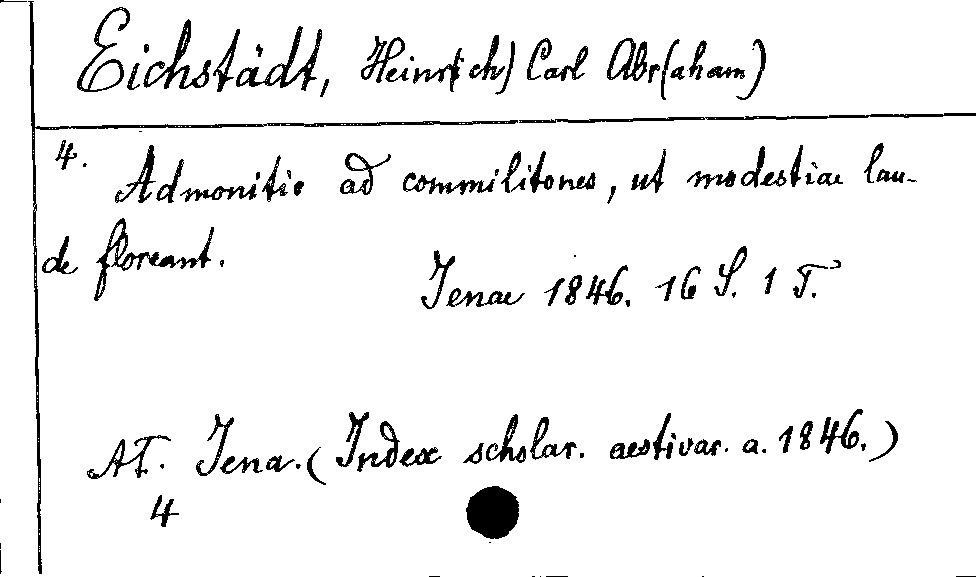 Eichstädt, Heinr(ich) Carl Abr(aham)
4. Admonitio ad commilitones, ut modestiae lau-
de floreant.
Jenae 1846. 16 S. 1 T.
AT. Jena. (Index scholar. aestivar. a. 1846.)
4